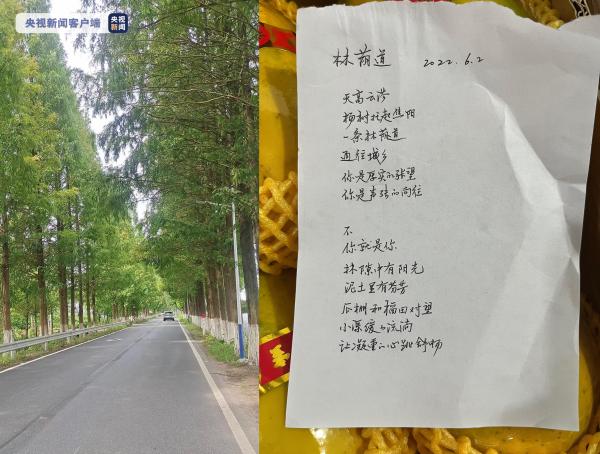 央视新闻客户端
CCTV
央视新闻
林荫道 2022.6.2
天高云淡
杨树托起焦阳
一条林荫道
通往城乡
你是厚实的张望
你是声弦的向往
不
你就是你
林隙中有阳光
泥土里有芬芳
瓜棚和稻田对望
小溪缓缓流淌
让凝重的心跳舒畅